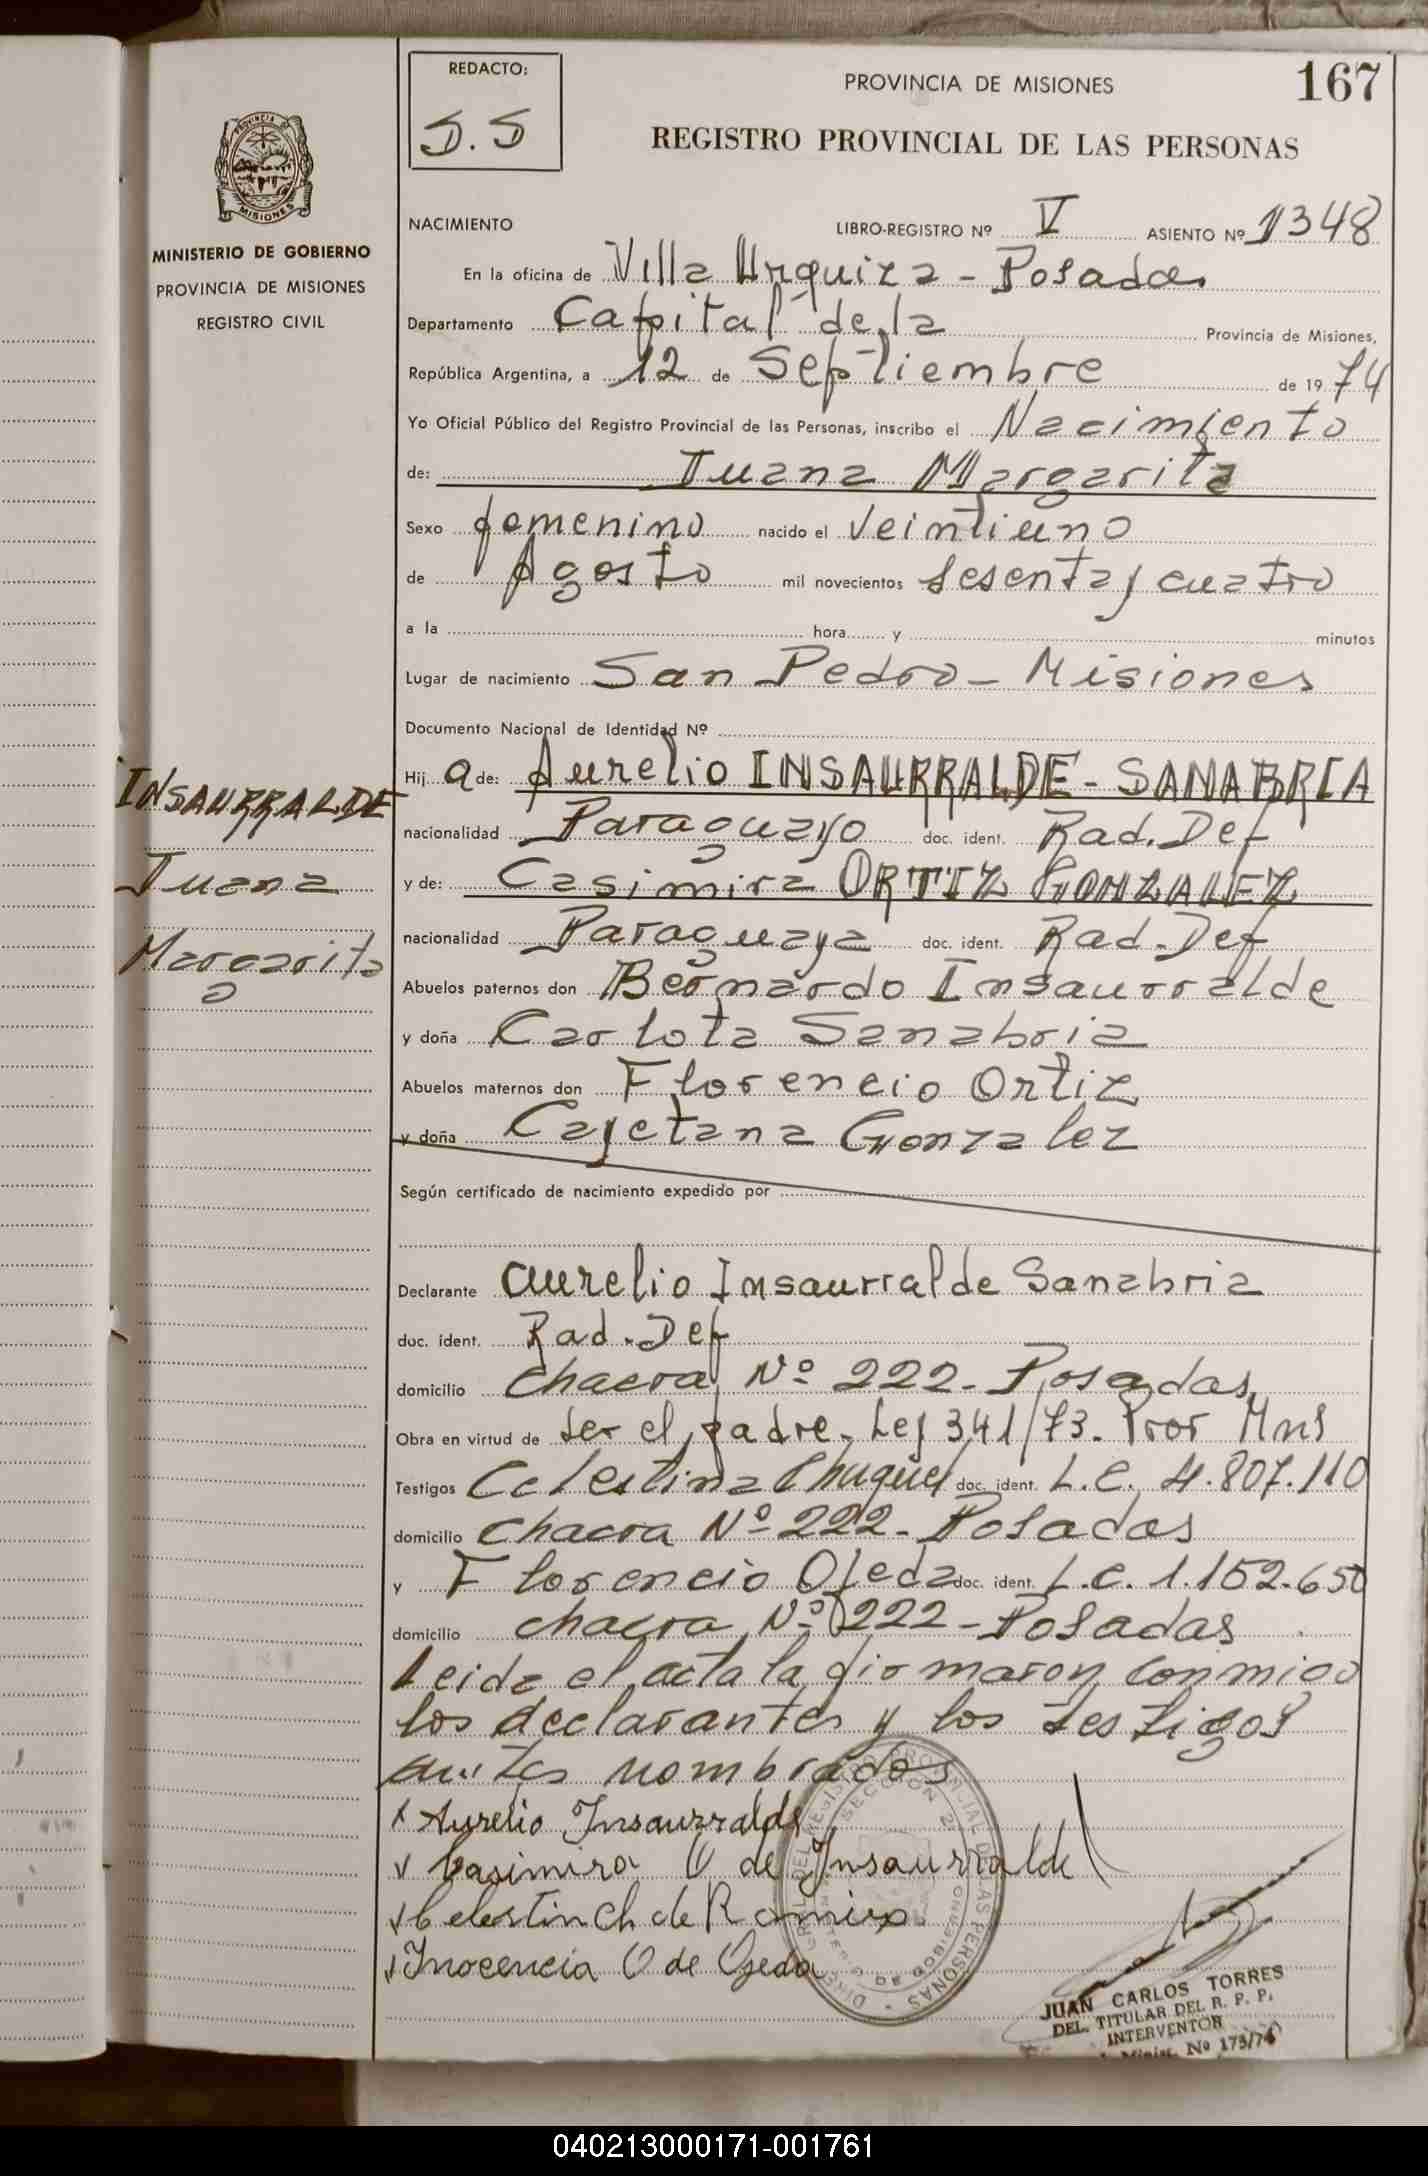 REDACTO:
S.S
PROVINCIA DE MISIONES
167
REGISTRO PROVINCIAL DE LAS PERSONAS
PROVINCIA DE
MISIONES
MINISTERIO DE GOBIERNO
PROVINCIA DE MISIONES
REGISTRO CIVIL
NACIMIENTO LIBRO-REGISTRO Nº V ASIENTO Nº 1348
En la oficina de Villa Urquiza - Posadas
Departamento Capital de la Provincia de Misiones,
República Argentina, a 12 de Septiembre de 1974
Yo Oficial Público del Registro Provincial de las Personas, inscribo el Nacimiento
de: Juana Margarita
Sexo femenino nacido el Veintiuno
de Agosto mil novecientos sesenta y cuatro
a la hora y minutos
Lugar de nacimiento San Pedro - Misiones
Documento Nacional de Identidad Nº
Hij a de: Aurelio INSAURRALDE - SANABRIA
INSAURRALDE
nacionalidad Paraguayo doc. ident. Rad. Def
Juana
y de: Casimira ORTIZ GONZALEZ
nacionalidad Paraguaya doc. ident. Rad. Def
Margarita
Abuelos paternos don Bernardo Insaurralde
y doña Carlota Sanabria
Abuelos maternos don Florencio Ortiz
y doña Cayetana Gonzalez
Según certificado de nacimiento expedido por
Declarante Aurelio Insaurralde Sanabria
doc. ident. Rad. Def
domicilio Chacra Nº 222 - Posadas
Obra en virtud de ser el padre. Ley 341/73. Pror Mns
Testigos Celestina doc. ident. L.C. 4.807.110
domicilio Chacra Nº 222 - Posadas
y Florencio Ojeda doc. ident. L.C. 1.152.650
domicilio chacra Nº 222 - Posadas
Leida el acta la firmaron conmigo
los declarantes y los testigos
antes nombrados
Aurelio Insaurralde
Casimira O de Insaurralde
Celestin Ch de Ramirez
Inocencia O de Ojeda
JUAN CARLOS TORRES
DEL. TITULAR DEL R. P. P.
INTERVENTOR
Nº 173/74
040213000171-001761